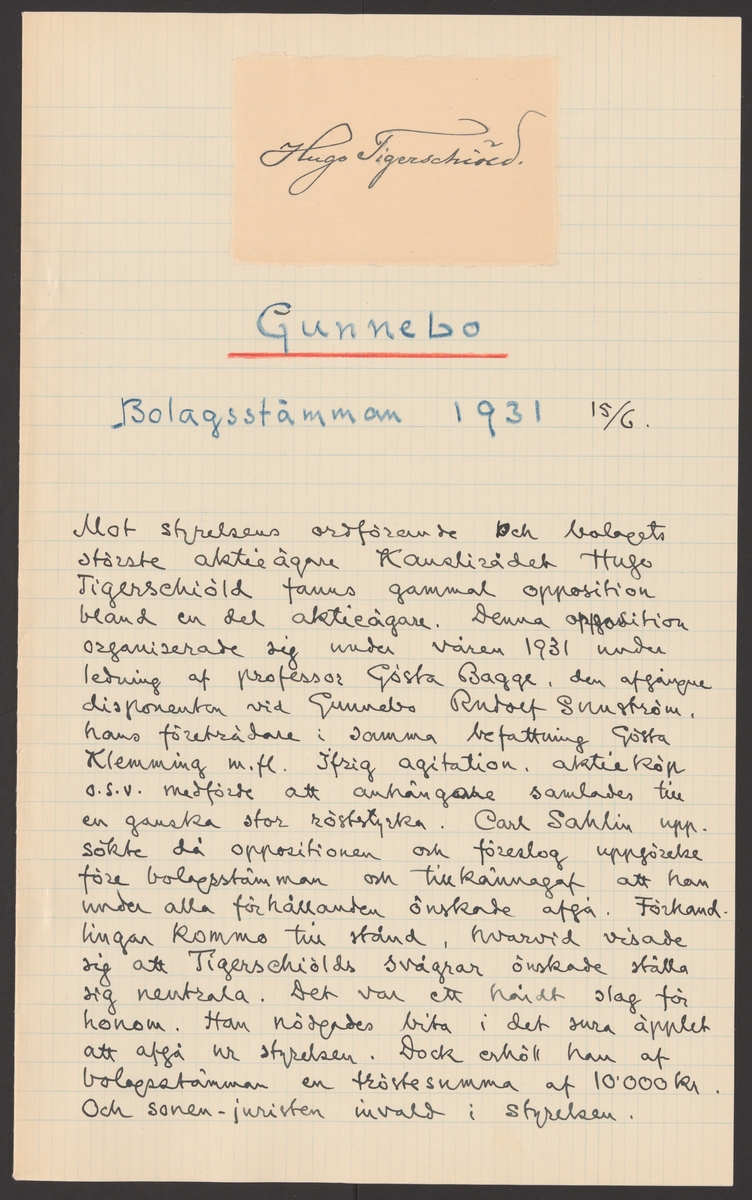 Hugo Tigerschiöld.
Gunnebo
Bolagsstämman 1931 15/6.
Mot styrelsens ordförande och bolagets
störste aktieägare Kanslirådet Hugo
Tigerschiöld fanns gammal opposition
bland en del aktieägare. Denna opposition
organiserade sig under våren 1931 under
ledning af professor Gösta Bagge, den afgångne
disponenten vid Gunnebo Rudolf Sunström,
hans företrädare i samma befattning Gösta
Klemming m.fl. Ifrig agitation, aktieköp
o.s.v. medförde att anhängare samlades till
en ganska stor röststyrka. Carl Sahlin upp-
sökte då oppositionen och föreslog uppgörelse
före bolagsstämman och tillkännagaf att han
under alla förhållanden önskade afgå. Förhand-
lingar kommo till stånd, hvarvid visade
sig att Tigerschiölds svågrar önskade ställa
sig neutrala. Det var ett hårdt slag för
honom. Han nödgades bita i det sura äpplet
att afgå ur styrelsen. Dock erhöll han af
bolagsstämman en tröstesumma af 10'000 kr.
Och sonen-juristen invald i styrelsen.